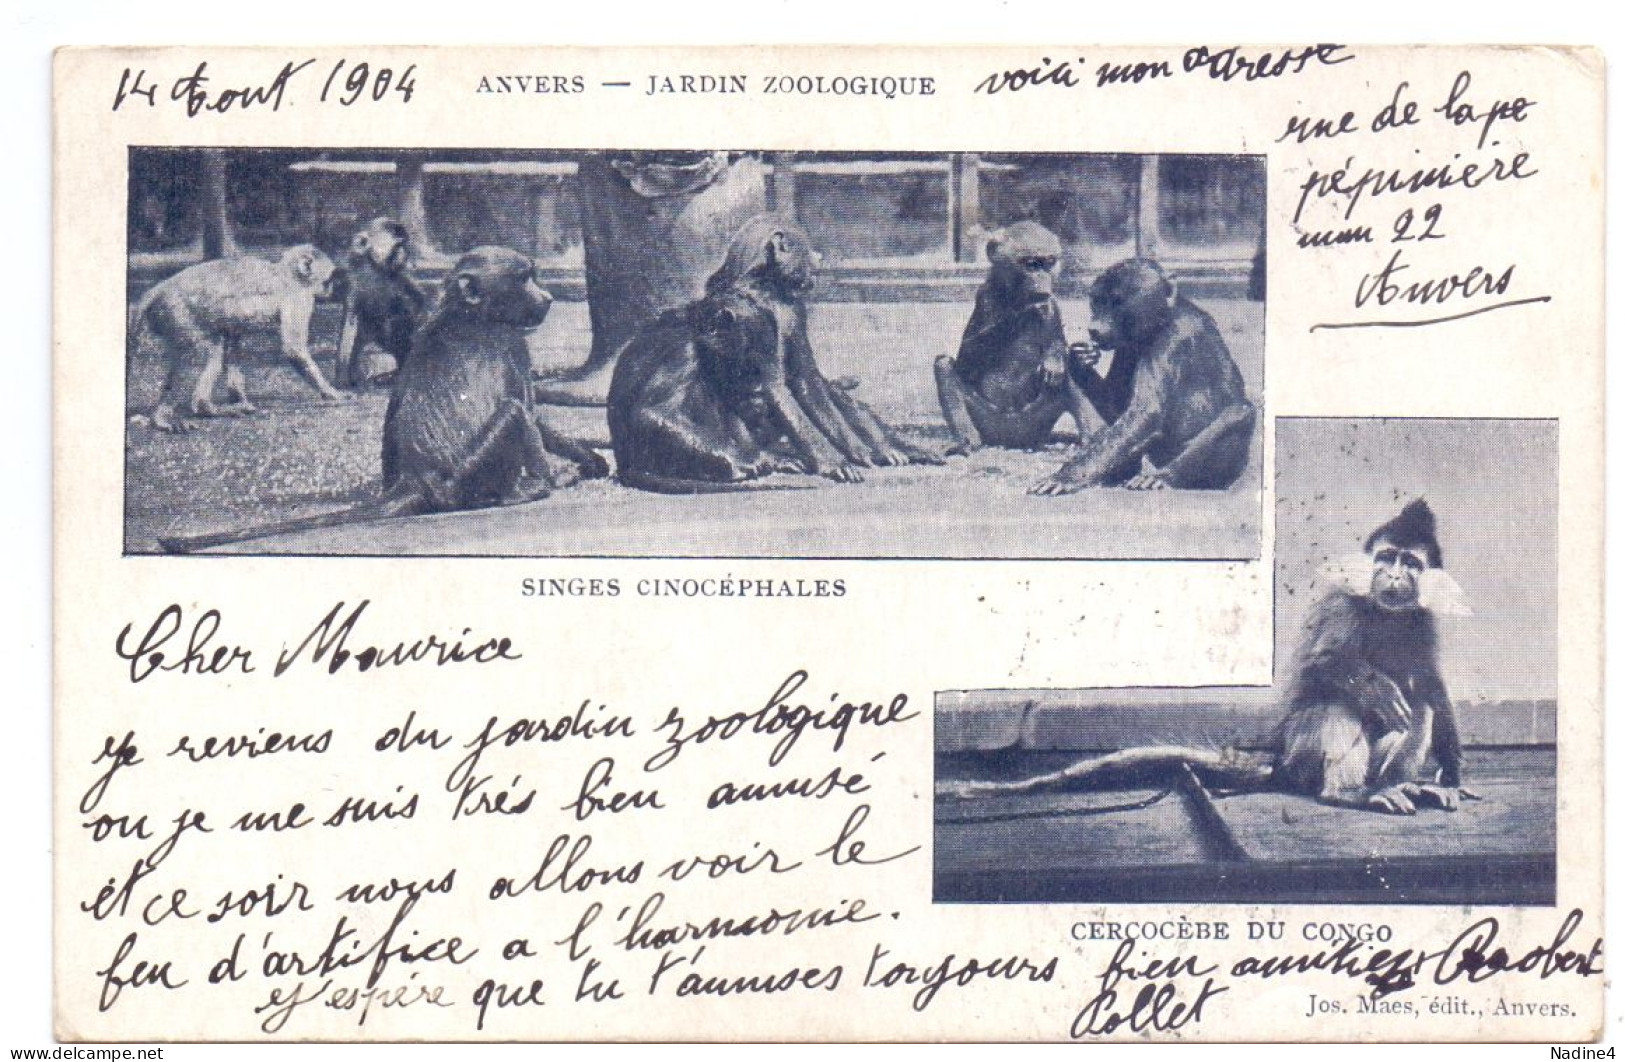 14 Aout 1904
ANVERS — JARDIN ZOOLOGIQUE
voici mon adresse
rue de la pe
pépinière
22
Anvers
SINGES CINOCÉPHALES
Cher Maurice
je reviens du jardin zoologique
ou je me suis trés bien amusé
et ce soir nous allons voir le
feu d'artifice a l'harmonie.
j'espére que tu t'amuses toujours bien amitiés Robert
Collet
CERCOCÈBE DU CONGO
Jos. Maes, édit., Anvers.
delcampe.net
Nadine4